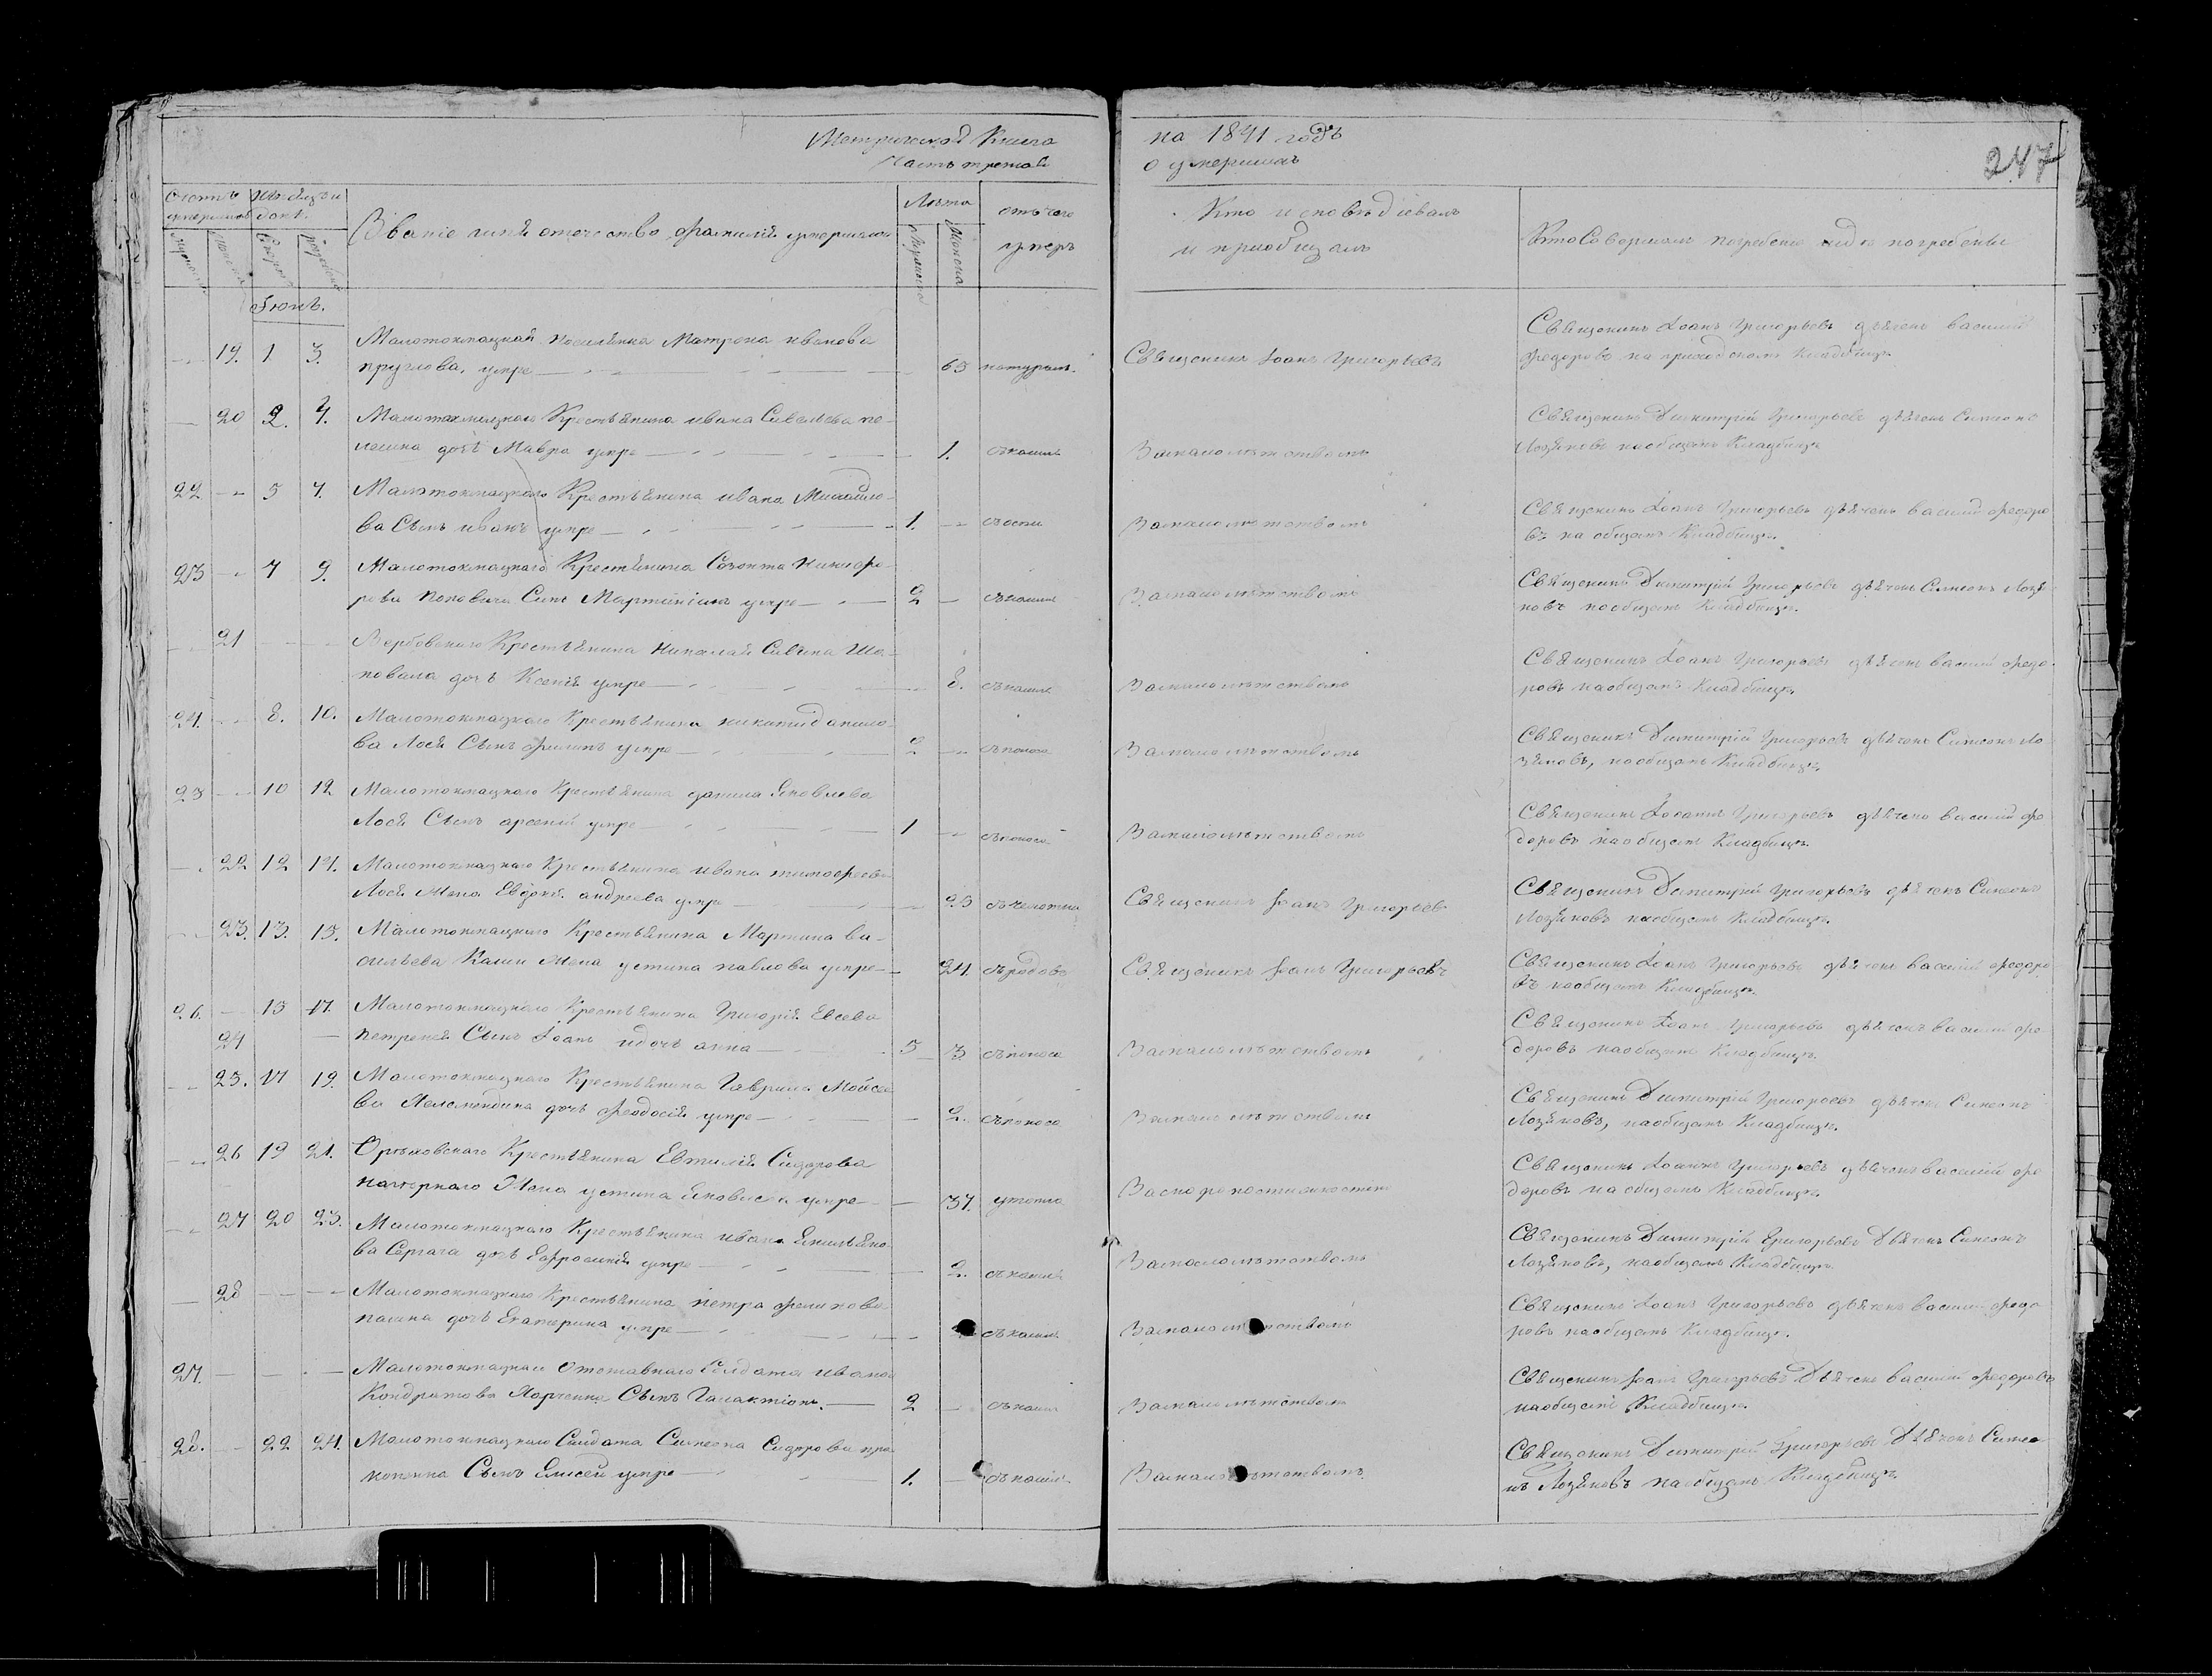 Метрической Книга на 1841 годъ
Часть третий о умершихъ
247
Счетъ умершихъ
Мѣсяцъ и день.
Званіе имя отечество фамилія умершихъ
Лѣта
отъ чего умеръ
Кто исповѣдывалъ и приобщалъ
Кто Совершалъ погребеніе и гдѣ погребены
Іюнь.
19. 1 3. Малотокмацкая Матрона иванова
умре 65 натурал.
Священикъ Іоанъ Григорьевъ
Священикъ Іоанъ Григорьевъ дьячекъ василий
федоровъ на приходскомъ Кладбищѣ
20 2. 4. Малотокмацкаго Крестьянина ивана Савельева
дочь Мавра умре 1. съкашля
Замалолѣтствомъ
Священикъ Димитрій Григорьевъ дьячекъ Симеонъ
Лозяновъ наобщемъ Кладбищѣ
22 5 7. Малотокмацкаго Крестьянина ивана Михайло-
ва Сынъ иванъ умре 1. съоспи
Замалолѣтствомъ
Священикъ Іоанъ Григорьевъ дьячекъ василий федоро
въ на общемъ Кладбищѣ.
23 7 9. Малотокмацкаго Крестьянина Созонта Никифо-
рова Поповича Синъ Мартиніянъ умре 2 съкашля
Замалолѣтствомъ
Священикъ Димитрій Григорьевъ дьячекъ Симеонъ Лозя
новъ наобщемъ Кладбищѣ.
21 Вербовскаго Крестьянина Николая Савина Ша-
повала дочь Ксенія умре 8. съкашля
Замалолѣтствомъ
Священикъ Іоанъ Григорьевъ дьячекъ василий федо-
ровъ наобщемъ Кладбищѣ.
24. 8. 10. Малотокмацкаго Крестьянина никити данило
ва Лося Сынъ филипъ умре 2 съпоноса
Замалолѣтствомъ
Священикъ Димитрій Григорьевъ дьячекъ Симеонъ Ло
зяновъ, наобщемъ Кладбищѣ.
25 10 12 Малотокмацкаго Крестьянина данила Яковлева
Лося Сынъ арсеній умре 1 съпоноса
Замалолѣтствомъ
Священикъ Іоанъ Григорьевъ дьячекъ василий фе
доровъ наобщемъ Кладбищѣ.
22 12 14. Малотокмацкаго Крестьянина ивана тимофеева
Лося Жена Евдокія андреева умре 25
Священикъ Іоанъ Григорьевъ
Священикъ Димитрій Григорьевъ дьячекъ Симеонъ
Лозяновъ наобщемъ Кладбищѣ.
23. 13. 15. Малотокмацкаго Крестьянина Мартина ва-
сильева Каши Жена устина павлова умре 24. съродовъ
Священикъ Іоанъ Григорьевъ
Священикъ Іоанъ Григорьевъ дьячекъ василий федоро
въ наобщемъ Кладбищѣ.
26. 15 17. Малотокмацкаго Крестьянина Григорія Евсеева
24 Сынъ Іоанъ идочь анна 5 3 съпоноса
Замалолѣтствомъ
Священикъ Іоанъ Григорьевъ дьячекъ василий фе
доровъ наобщемъ Кладбищѣ.
25. 17 19. Малотокмацкаго Крестьянина Гаврила Мойсее
ва дочь феодосія умре 2. съпоноса
Замалолѣтствомъ
Священикъ Димитрій Григорьевъ дьячекъ Симеонъ
Лозяновъ, наобщемъ Кладбищѣ.
26 19 21. Орѣховскаго Крестьянина Евтихія Сидорова
Жена устина Яковлева умре 37. утопла
Заскоропостижностію
Священикъ Іоанъ Григорьевъ дьячекъ василий фе
доровъ на общемъ Кладбищѣ.
27 20 23. Малотокмацкаго Крестьянина ивана Емельяно
ва Сергага дочь Евфросинія умре 2. съкашля
Замалолѣтствомъ
Священикъ Димитрій Григорьевъ Дьячекъ Симеонъ
Лозяновъ, наобщемъ Кладбищѣ.
28 Малотокмацкаго Крестьянина петра
дочь Екатерина умре съкашля
Замалолѣтствомъ
Священикъ Іоанъ Григорьевъ дьячекъ василий федо
ровъ наобщемъ Кладбищѣ.
27. Малотокмацкаго Отставнаго Солдата ивана
Кондратова Сынъ Галактіонъ. 2 съкашля
Замалолѣтствомъ
Священикъ Іоанъ Григорьевъ Дьячекъ василий федоровъ
наобщемъ Кладбищѣ.
28. 22 24. Малотокмацкаго Солдата Симеона Сидорова про
копенка Сынъ Елисей умре 1. съкашля
Замалолѣтствомъ.
Священикъ Димитрій Григорьевъ Дьячекъ Симео
нъ Лозяновъ наобщемъ Кладбищѣ.